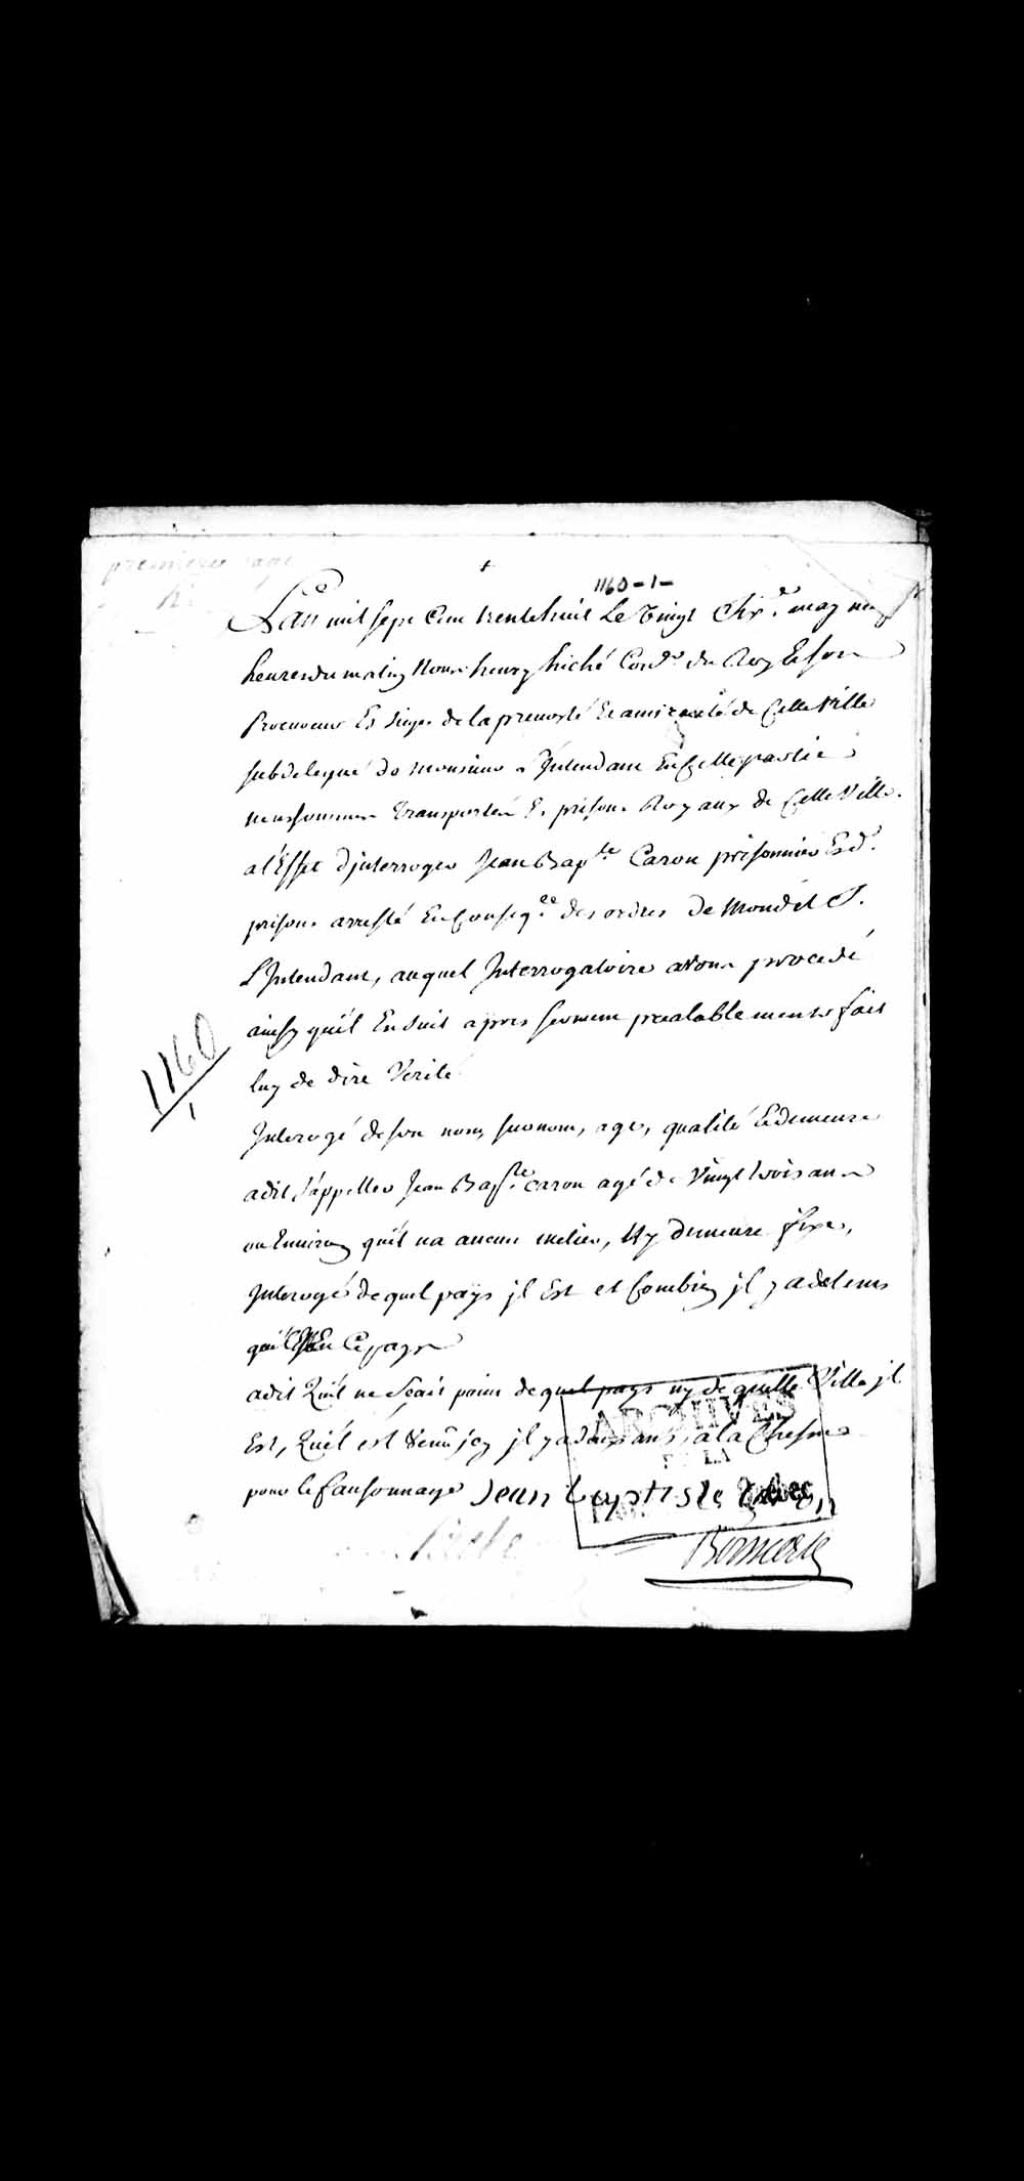 premiere page
1160-1-
L'an mil sept Cent trente huit Le Vingt Six.e may neuf
heures du matin Nous henry hiché Con.er du Roy Et son
Procureur Es Sieges de la prevosté Et amirauté de Cette Ville
subdelegué de Monsieur L'Intendant En Cette partie
nous sommes transportés Es prisons Royaux de Cette Ville.
a l'Effet d'jnterroger Jean Bap.te Caron prisonnier Esd.
prisons arresté En Conseq.ce des ordres De Mondit S.
L'Intendant, auquel Interrogatoire avons procedé
ainsy qu'il En suit apres serment prealablement fait
luy de dire Verité
Interogé de son nom, surnom, age, qualité Et demeure
a dit s'appeller Jean Bap.te caron agé de Vingt trois ans
ou Environ qu'il na aucun métier, Ny Demeure fixe,
Interogé de quel pays jl Est et Combien jl y a de tems
qu'il Est En Ce pays
a dit Qu'il ne sçait point de quel pays ny de quelle Ville jl
Est, Qu'il est Venu jcy jl y a deux ans, a la Chesne
pour le fausonnage Jean baptiste Caron
ARCHIVES
DE LA
Hiché
Boisseau
1160
1